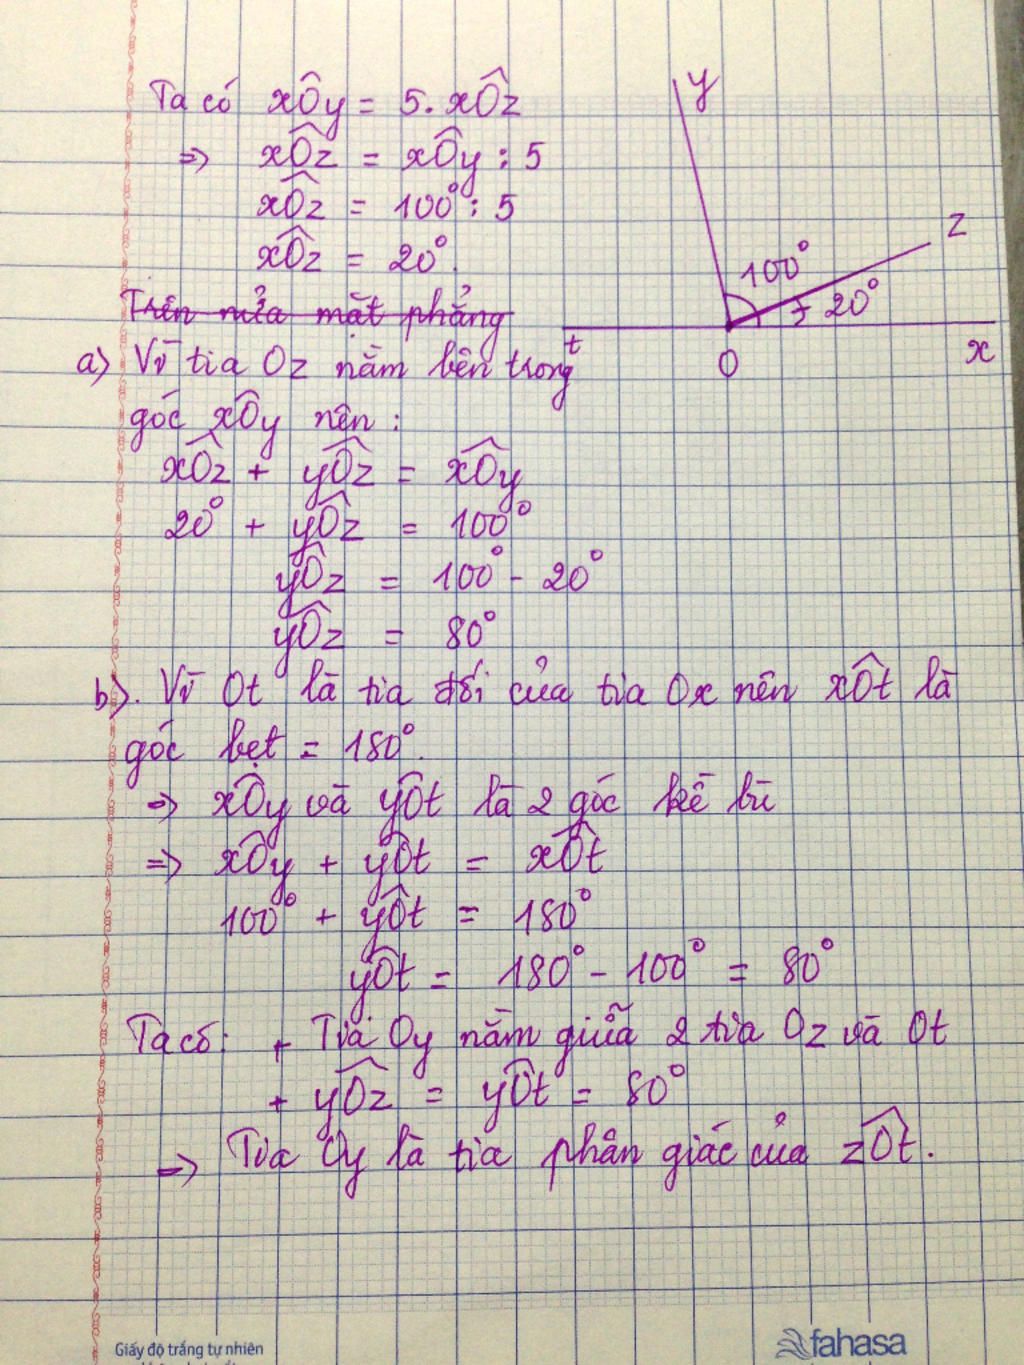 Ta có xÔy = 5. xÔz
=> xÔz = xÔy : 5
xÔz = 100° : 5
xÔz = 20°.
Trên nửa mặt phẳng
a) Vì tia Oz nằm bên trong
góc xÔy nên :
xÔz + yÔz = xÔy
20° + yÔz = 100°
yÔz = 100° - 20°
yÔz = 80°
y
z
100°
20°
t
O
x
b). Vì Ot là tia đối của tia Ox nên xÔt là
góc bẹt = 180°.
=> xÔy và yÔt là 2 góc kề bù
=> xÔy + yÔt = xÔt
100° + yÔt = 180°
yÔt = 180° - 100° = 80°
Ta có: + Tia Oy nằm giữa 2 tia Oz và Ot
+ yÔz = yÔt = 80°
=> Tia Oy là tia phân giác của zÔt.
Giấy độ trắng tự nhiên
fahasa